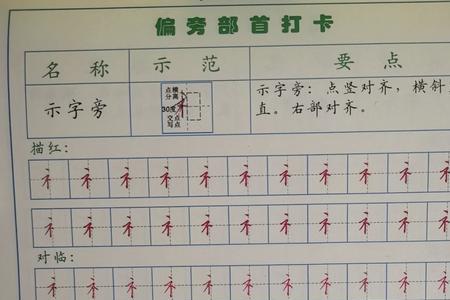 偏旁部首打卡
名称 示范 要点
示字旁 点分横高30度交写点点 示字旁：点竖对齐，横斜
直。右部对齐。
描红：
礻礻礻礻礻礻礻礻礻礻礻
礻礻礻礻礻礻礻礻礻礻礻
对临：
礻礻礻礻礻礻礻礻礻礻礻